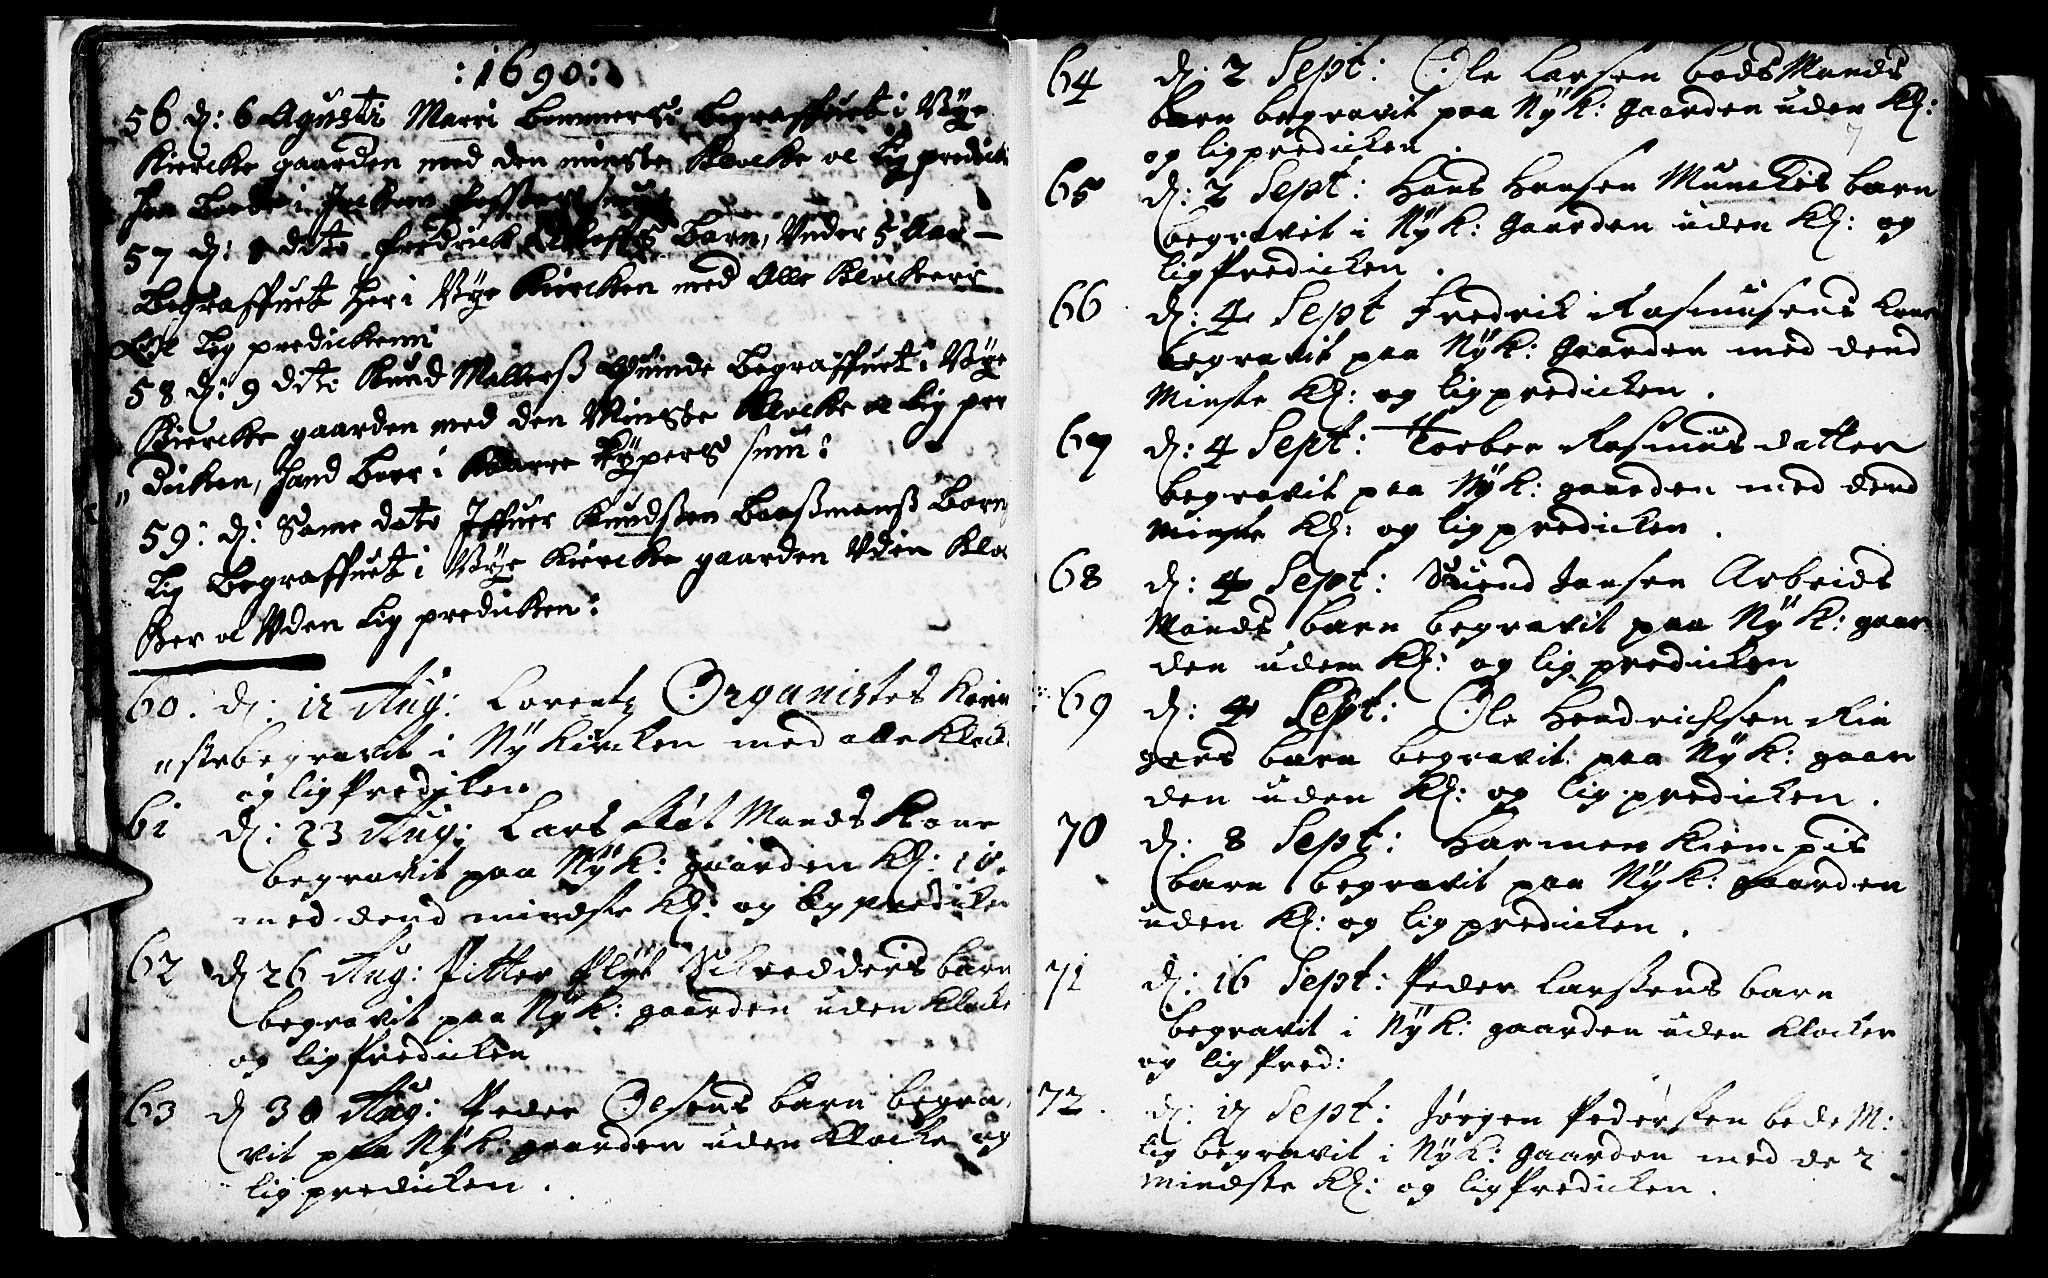 :1690:
56 d: 6 Agusti Marri Bommers: begraffuet i Nÿe
Kiercke gaarden med den minste Klocke oc Lig predick
57 d: 8 dito fredrick Barn, Vnder 5 Aar
Begraffuet her i Nÿe Kiercken med Alle Klockerr
Oc Lig predickenn
58 d: 9 dito Knud Mallerß Quinde Begraffuet i Nÿe
Kiercke gaarden med den Minste Klocke oc Lig pre
dicken, hand boer i Kÿpers
59: d: Same dato Iffuer Knudssen Baaßmanß Barn
Lig Begraffuet i Nÿe Kiercke gaarden Vden Kloc
ker oc Vden Lig predicken:
60. d: 12 Aug: Lorentz Organistes
begravit i Nÿ Kircken med alle Klock
og lig Predicken
61 d: 23 Aug: Lars Mands Kone
begravit paa Nÿ K: gaarden
med dend mindste Kl: og lig predicken
62 d 26 Aug: Pitter Plÿt Skredders barn
begravit paa Nÿ K: gaarden uden Klocke
og lig Predicken
63 d 30 Aug: Peder Olsens barn begra
vit paa Nÿ K: gaarden uden Klocke og
lig predicken.
64 d: 2 Sept: Ole Larsen bods Mands
barn begravit paa Nÿ K: gaarden uden Kl:
og lig predicken.
65 d: 2 Sept: Hans Hansen Munckes barn
begravit i Nÿ K: gaarden uden Kl: og
lig Predicken.
66 d: 4 Sept Fredrik Rasmusens Kone
begravit paa Nÿ K: gaarden med dend
Minste Kl: og lig predicken.
67 d: 4 Sept: Torber Rasmus datter
begravit paa Nÿ K: gaarden med dend
Minste Kl: og lig predicken.
68 d: 4 Sept: Suend Jansen Arbeids
Mands barn begravit paa Nÿ K: gaar
den uden Kl: og lig predicken
69 d: 4 Sept: Ole Hendrichsen Rin
gers barn begravit paa Nÿ K: gaar
den uden Kl: og lig predicken.
70 d: 8 Sept: Harmen Kiempis
barn begravit paa Nÿ K: gaarden
uden Kl: og lig predicken.
71 d: 16 Sept: Peder Larsens barn
begravit i Nÿ K: gaarden uden Klocker
og lig Pred:
72. d: 17 Sept: Jørgen Pedersen bede M:
lig begravit i Nÿ K: gaarden med de 2
mindste Kl: og lig Predicken.